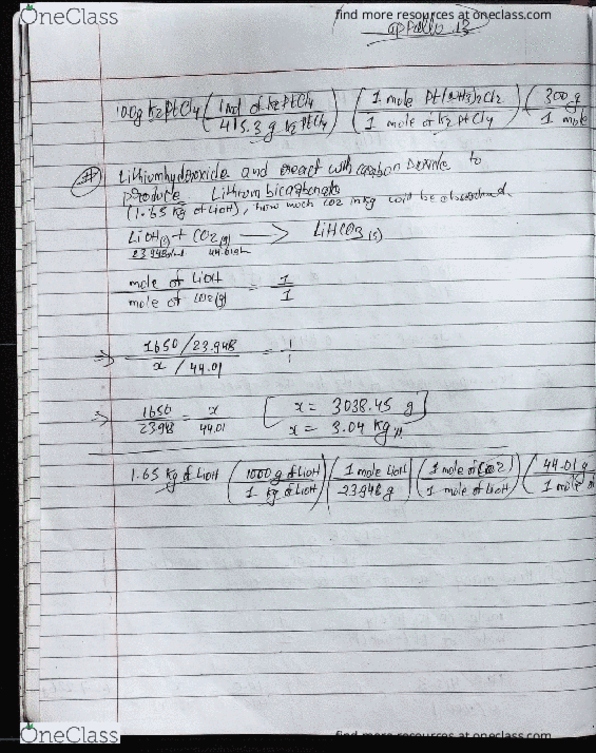 OneClass
find more resources at oneclass.com
100g K2PtCl4 (1 mol of K2PtCl4 / 415.3 g K2PtCl4) (1 mole Pt(NH3)2Cl2 / 1 mole of K2PtCl4) (300 g / 1 mole
Lithiumhydroxide and react with carbon Dioxide to
produce Lithium bicarbonate
(1.65 kg of LiOH), how much CO2 in kg will be absorbed.
LiOH(s) + CO2(g) → LiHCO3(s)
23.948 g/mol 44.01 g/m
mole of LiOH / mole of CO2(g) = 1/1
⇒ 1650/23.948 / x/44.01 = 1/1
⇒ 1650/23.948 = x/44.01 [x = 3038.45 g]
x = 3.04 kg
1.65 kg of LiOH (1000 g of LiOH / 1 kg of LiOH) (1 mole LiOH / 23.948 g) (1 mole of CO2 / 1 mole of LiOH) (44.01 g / 1 mole
OneClass
find more resources at oneclass.com